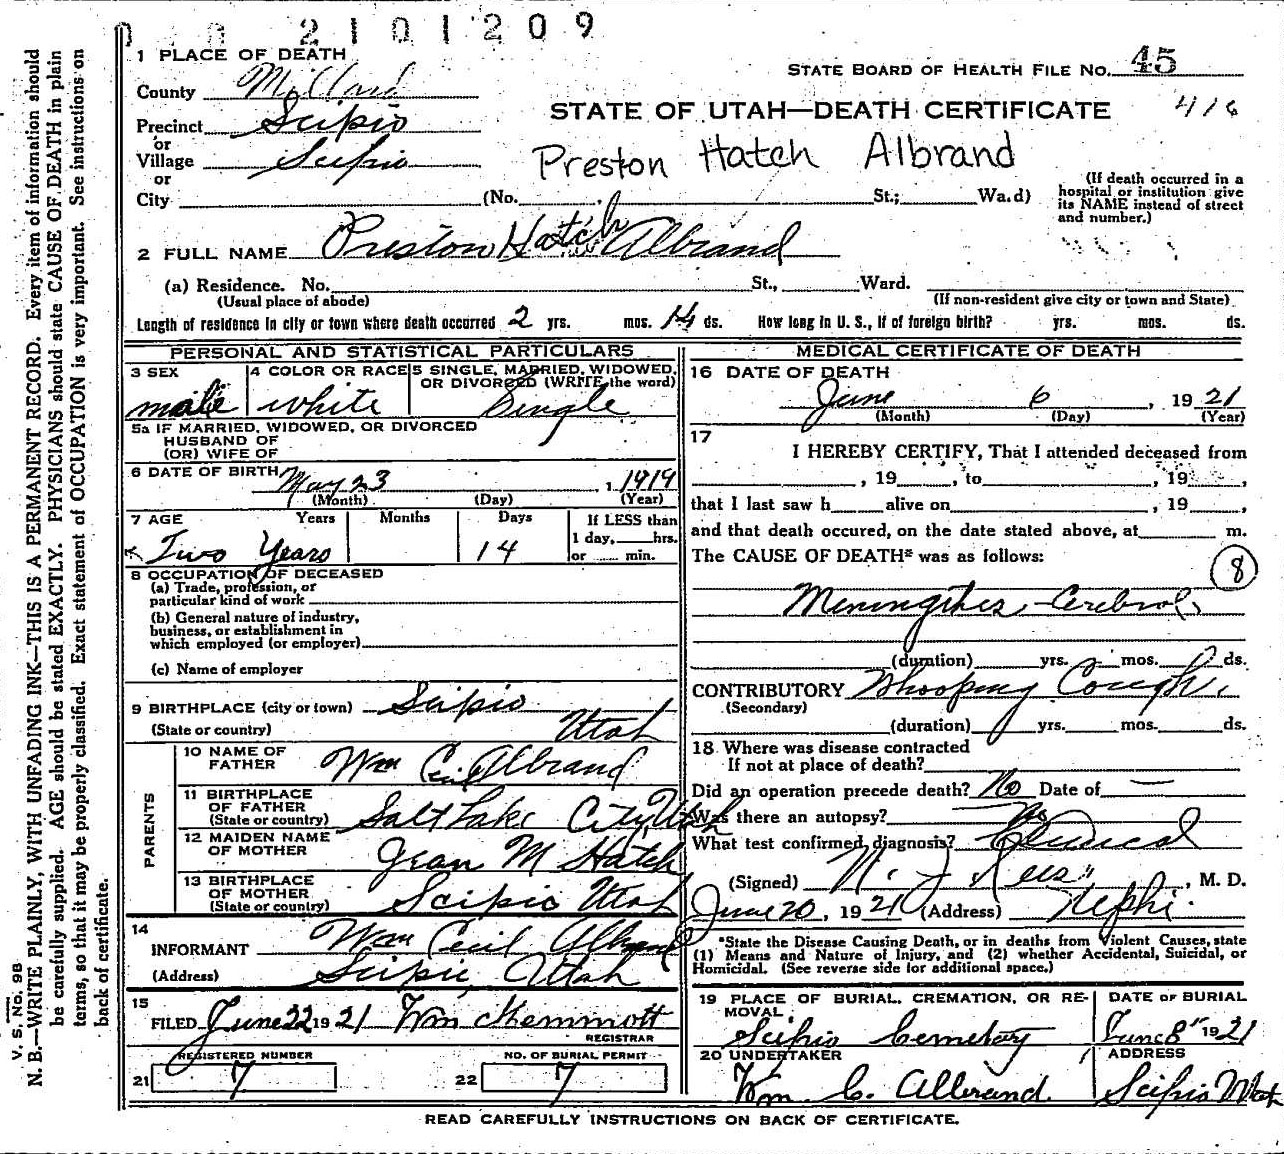 2101209
1 PLACE OF DEATH
STATE BOARD OF HEALTH FILE NO. 45
County Millard
STATE OF UTAH—DEATH CERTIFICATE
416
Precinct Scipio
or
Village Scipio
Preston Hatch Albrand
or
City (No. St.; Wa.d)
(If death occurred in a hospital or institution give its NAME instead of street and number.)
2 FULL NAME Preston Hatch Albrand
(a) Residence. No. St., Ward.
(Usual place of abode) (If non-resident give city or town and State)
Length of residence in city or town where death occurred 2 yrs. mos. 14 ds. How long in U. S., if of foreign birth? yrs. mos. ds.
PERSONAL AND STATISTICAL PARTICULARS
3 SEX 4 COLOR OR RACE 5 SINGLE, MARRIED, WIDOWED, OR DIVORCED (WRITE the word)
male white Single
5a IF MARRIED, WIDOWED, OR DIVORCED
HUSBAND OF
(OR) WIFE OF
6 DATE OF BIRTH May 23, 1919
(Month) (Day) (Year)
7 AGE Years Months Days If LESS than
1 day, hrs.
or min.
Two Years 14
8 OCCUPATION OF DECEASED
(a) Trade, profession, or
particular kind of work
(b) General nature of industry,
business, or establishment in
which employed (or employer)
(c) Name of employer
9 BIRTHPLACE (city or town) Scipio
(State or country) Utah
PARENTS
10 NAME OF FATHER Wm Cecil Albrand
11 BIRTHPLACE OF FATHER (State or country) Salt Lake City, Utah
12 MAIDEN NAME OF MOTHER Jean M Hatch
13 BIRTHPLACE OF MOTHER (State or country) Scipio Utah
14
INFORMANT Wm Cecil Albrand
(Address) Scipio, Utah
15
FILED June 22 1921 Wm Memmott
REGISTRAR
REGISTERED NUMBER NO. OF BURIAL PERMIT
21 7 22 7
MEDICAL CERTIFICATE OF DEATH
16 DATE OF DEATH
June 6, 1921
(Month) (Day) (Year)
17
I HEREBY CERTIFY, That I attended deceased from
, 19 , to , 19 ,
that I last saw h alive on , 19 ,
and that death occured, on the date stated above, at m.
The CAUSE OF DEATH* was as follows:
8
Meningites Cerebral
(duration) yrs. mos. ds.
CONTRIBUTORY Whooping Cough
(Secondary)
(duration) yrs. mos. ds.
18 Where was disease contracted
If not at place of death?
Did an operation precede death? No Date of —
Was there an autopsy? No
What test confirmed diagnosis? Clinical
(Signed) N. J. Rees, M. D.
June 20, 1921 (Address) Nephi
*State the Disease Causing Death, or in deaths from Violent Causes, state
(1) Means and Nature of Injury, and (2) whether Accidental, Suicidal, or
Homicidal. (See reverse side for additional space.)
19 PLACE OF BURIAL, CREMATION, OR REMOVAL DATE OF BURIAL
Scipio Cemetary June 8" 1921
20 UNDERTAKER ADDRESS
Wm. C. Albrand. Scipio Utah
READ CAREFULLY INSTRUCTIONS ON BACK OF CERTIFICATE.
V. S. No. 98
N. B.—WRITE PLAINLY, WITH UNFADING INK—THIS IS A PERMANENT RECORD. Every item of information should
be carefully supplied. AGE should be stated EXACTLY. PHYSICIANS should state CAUSE OF DEATH in plain
terms, so that it may be properly classified. Exact statement of OCCUPATION is very important. See instructions on
back of certificate.